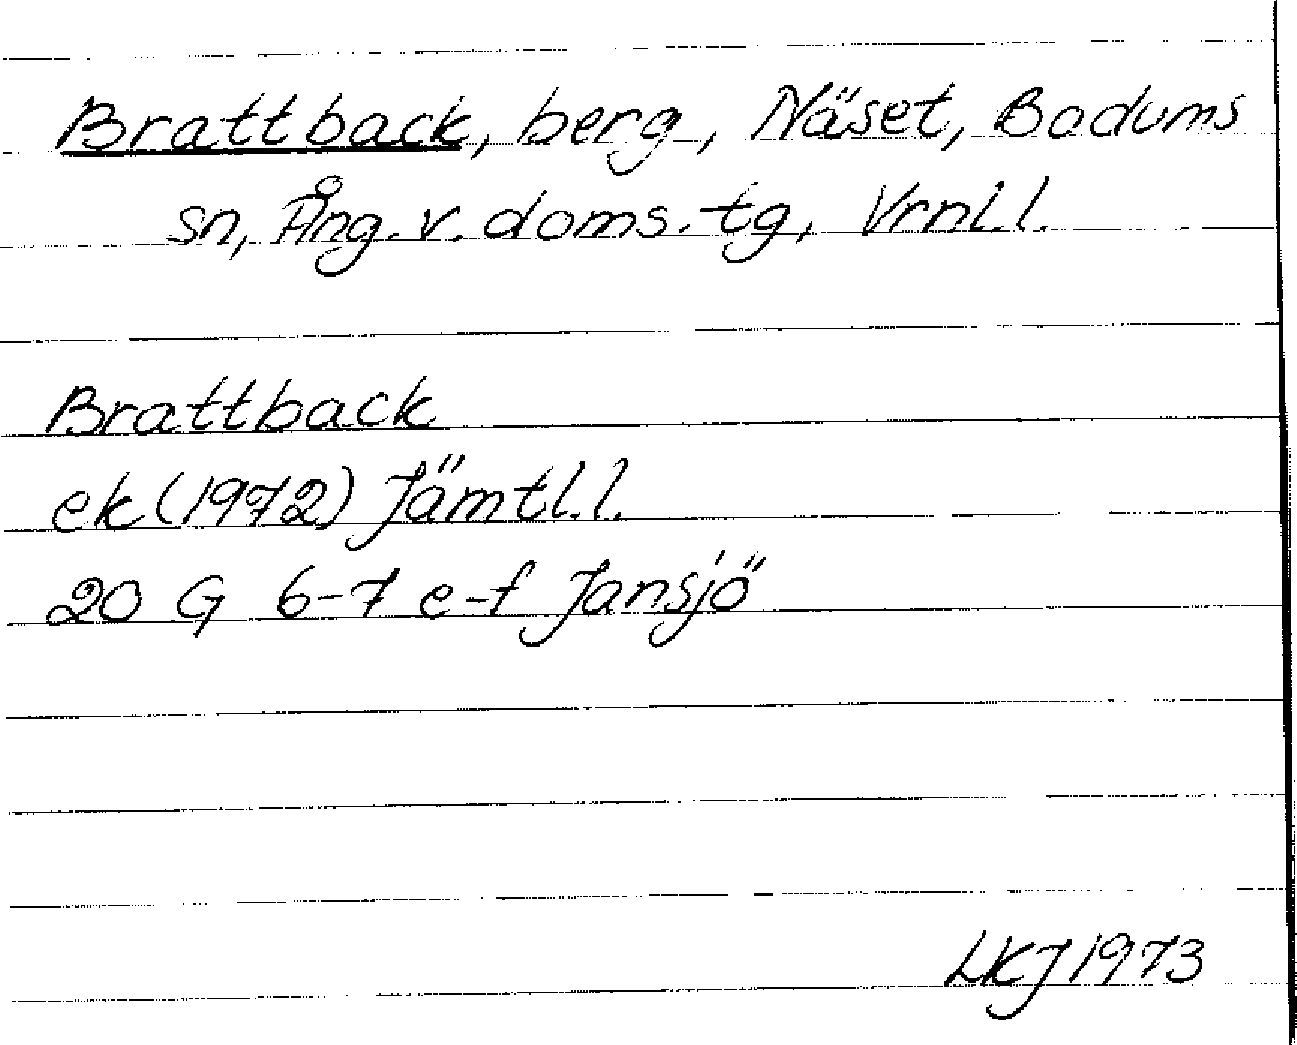 Brattback, berg, Näset, Bodums
sn, Ång. v. doms. tg, Vrnl. l.
Brattback
ek (1972) Jämtl. l.
20 G 6-7 e-f Jansjö
LKJ 1973